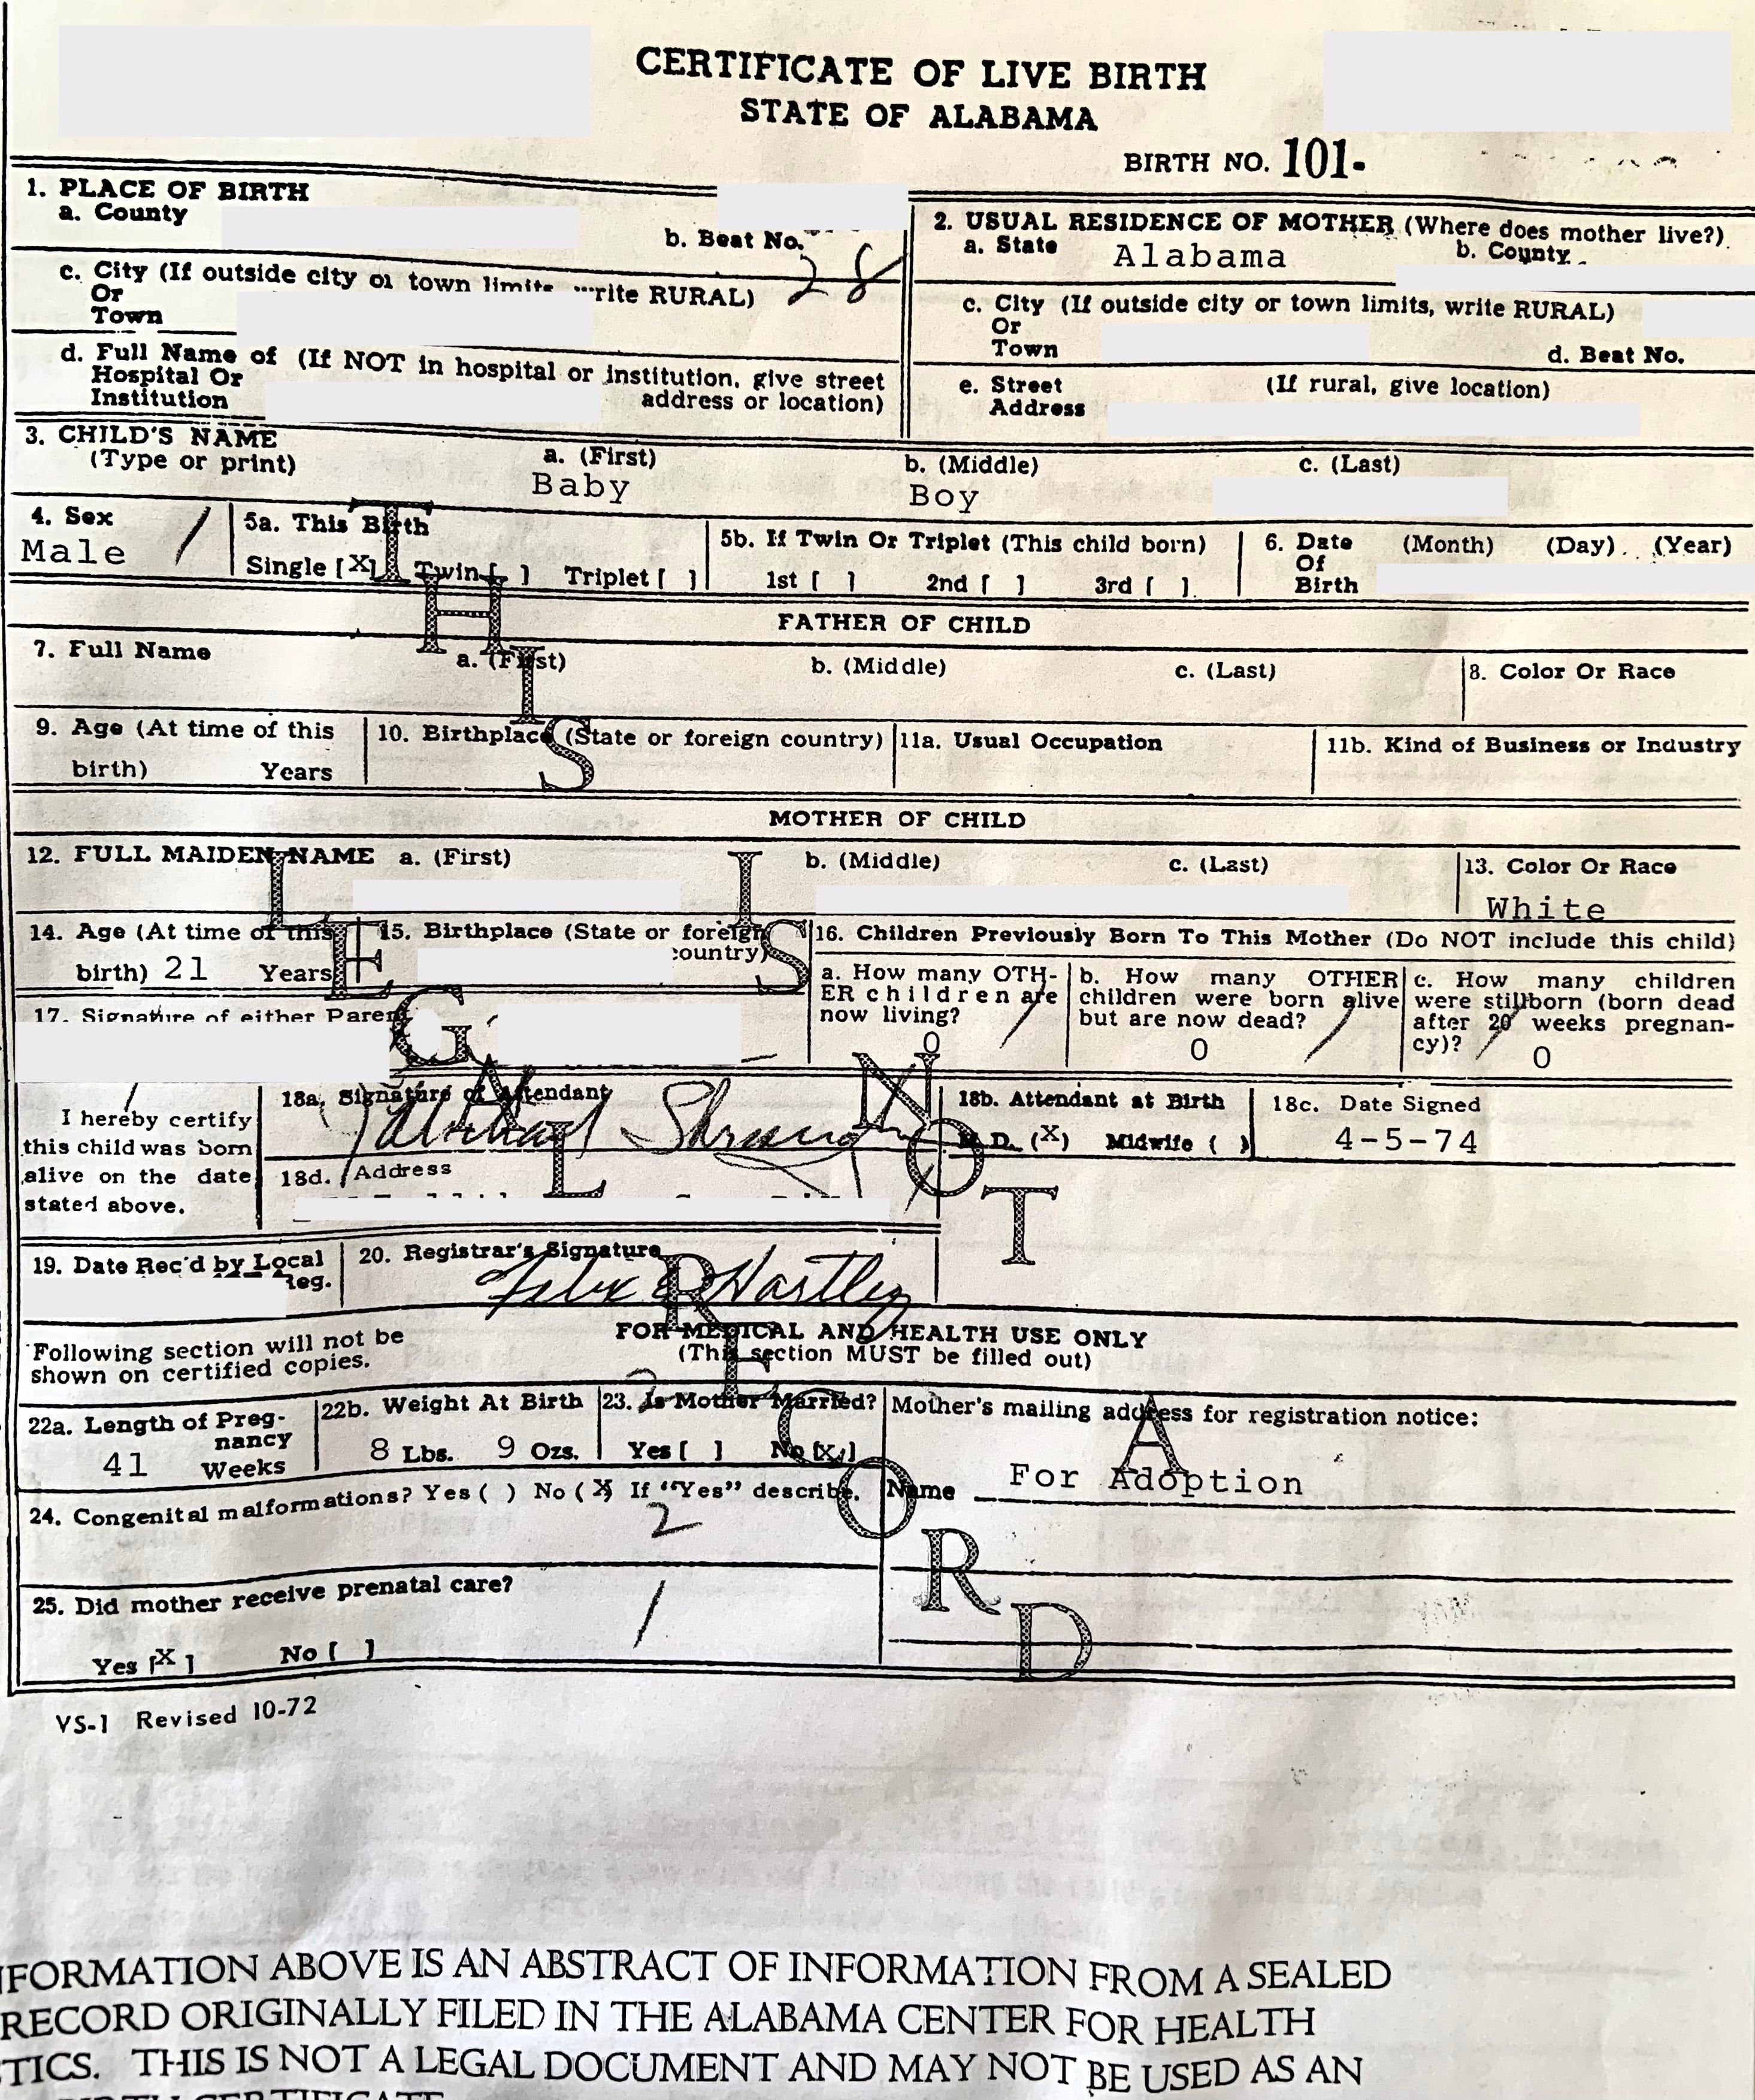 CERTIFICATE OF LIVE BIRTH
STATE OF ALABAMA
BIRTH NO. 101-
1. PLACE OF BIRTH
a. County
b. Beat No.
28
c. City (If outside city or town limits, write RURAL)
Or
Town
d. Full Name of (If NOT in hospital or institution, give street
Hospital Or
Institution address or location)
2. USUAL RESIDENCE OF MOTHER (Where does mother live?)
a. State Alabama b. County
c. City (If outside city or town limits, write RURAL)
Or
Town d. Beat No.
e. Street (If rural, give location)
Address
3. CHILD'S NAME
(Type or print) a. (First) b. (Middle) c. (Last)
Baby Boy
4. Sex
Male /
5a. This Birth
Single [X] Twin [ ] Triplet [ ]
5b. If Twin Or Triplet (This child born)
1st [ ] 2nd [ ] 3rd [ ]
6. Date (Month) (Day) (Year)
Of
Birth
FATHER OF CHILD
7. Full Name a. (First) b. (Middle) c. (Last) 8. Color Or Race
9. Age (At time of this
birth) Years
10. Birthplace (State or foreign country) 11a. Usual Occupation 11b. Kind of Business or Industry
MOTHER OF CHILD
12. FULL MAIDEN NAME a. (First) b. (Middle) c. (Last) 13. Color Or Race
White
14. Age (At time of this
birth) 21 Years
15. Birthplace (State or foreign
country)
16. Children Previously Born To This Mother (Do NOT include this child)
a. How many OTH-
ER children are
now living?
0 /
b. How many OTHER
children were born alive
but are now dead?
0 /
c. How many children
were stillborn (born dead
after 20 weeks pregnan-
cy)? / 0
17. Signature of either Parent
I hereby certify
this child was born
alive on the date
stated above.
18a. Signature of Attendant
18b. Attendant at Birth
M.D. (X) Midwife ( )
18c. Date Signed
4-5-74
18d. Address
19. Date Rec'd by Local
Reg.
20. Registrar's Signature
Felix E Hartley
Following section will not be
shown on certified copies.
FOR MEDICAL AND HEALTH USE ONLY
(This section MUST be filled out)
22a. Length of Preg-
nancy
41 Weeks
22b. Weight At Birth
8 Lbs. 9 Ozs.
23. Is Mother Married?
2
Yes [ ] No [X]
Mother's mailing address for registration notice:
Name For Adoption
24. Congenital malformations? Yes ( ) No (X) If "Yes" describe.
2
25. Did mother receive prenatal care?
/
Yes [X] No [ ]
THIS
IS
NOT
A
LEGAL
RECORD
VS-1 Revised 10-72
NFORMATION ABOVE IS AN ABSTRACT OF INFORMATION FROM A SEALED
RECORD ORIGINALLY FILED IN THE ALABAMA CENTER FOR HEALTH
TICS. THIS IS NOT A LEGAL DOCUMENT AND MAY NOT BE USED AS AN
BIRTH CERTIFICATE